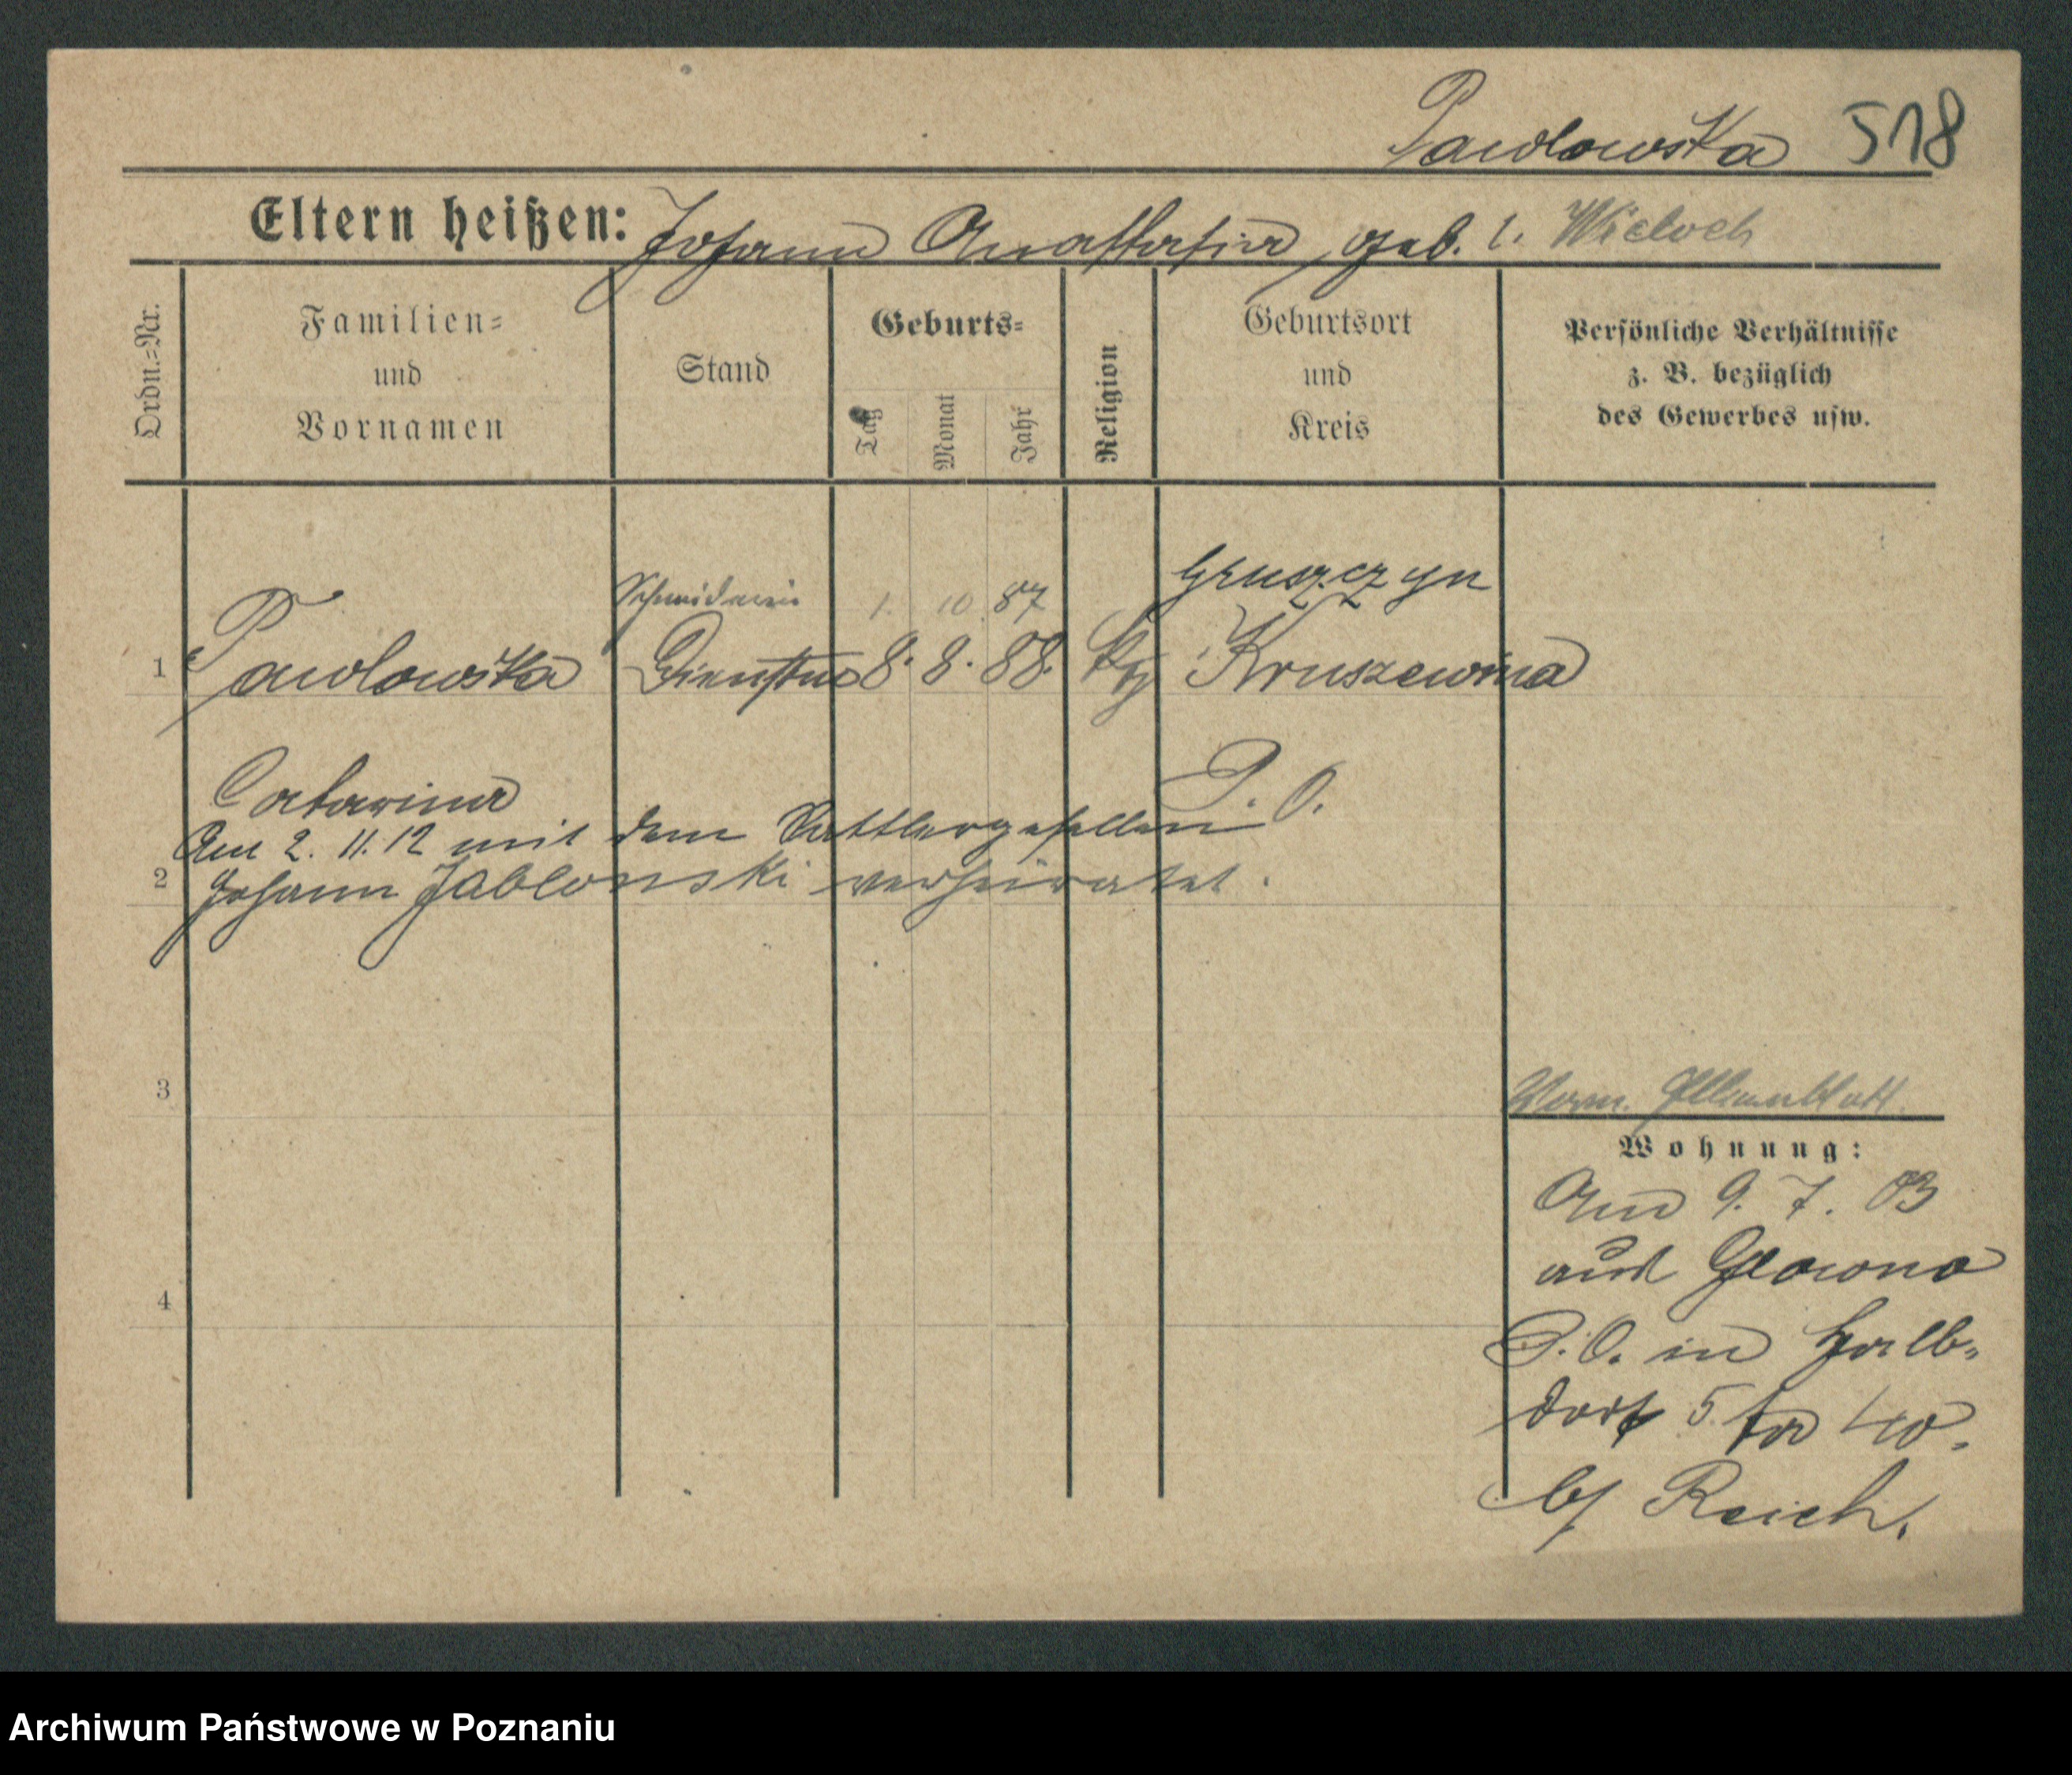 Pawlowska 518
Eltern heißen: Johann Anastasia, geb. Wieloch
Ordn.=Nr.
Familien=
und
Vornamen
Stand
Geburts=
Tag
Monat
Jahr
Religion
Geburtsort
und
Kreis
Persönliche Verhältnisse
z. B. bezüglich
des Gewerbes usw.
Gruszczyn
Schneiderin 1. 10. 87
1 Pawlowska 8. 8. 88. Kruszewnia
Catarina P. O.
Am 2. 11. 12 mit dem Sattlergesellen
2 Johann Jablonski verheiratet.
3
4
Wohnung:
Am 9. 7. 03
aus Glowno
P. O. in Halb-
dorf 5
b/ Reich.
Archiwum Państwowe w Poznaniu